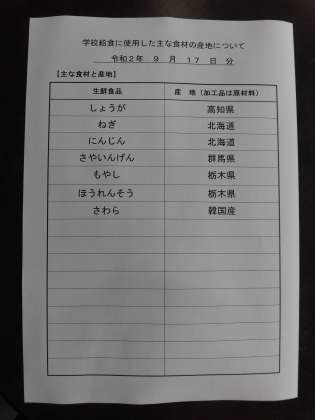 学校給食に使用した主な食材の産地について
令和2年 9 月 17 日 分
【主な食材と産地】
生鮮食品 産 地（加工品は原材料）
しょうが 高知県
ねぎ 北海道
にんじん 北海道
さやいんげん 群馬県
もやし 栃木県
ほうれんそう 栃木県
さわら 韓国産